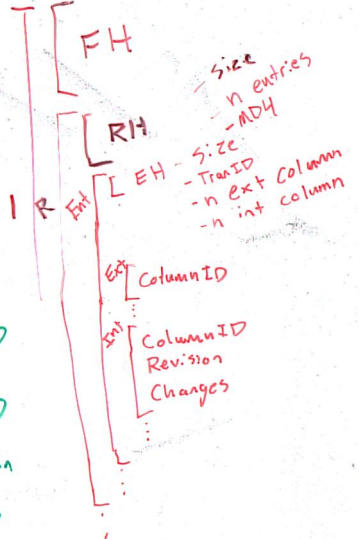 FH
- size
- n entries
- MD4
RH
I R Ent
EH - size
- TranID
- n ext column
- n int column
Ext
ColumnID
Int
ColumnID
Revision
Changes